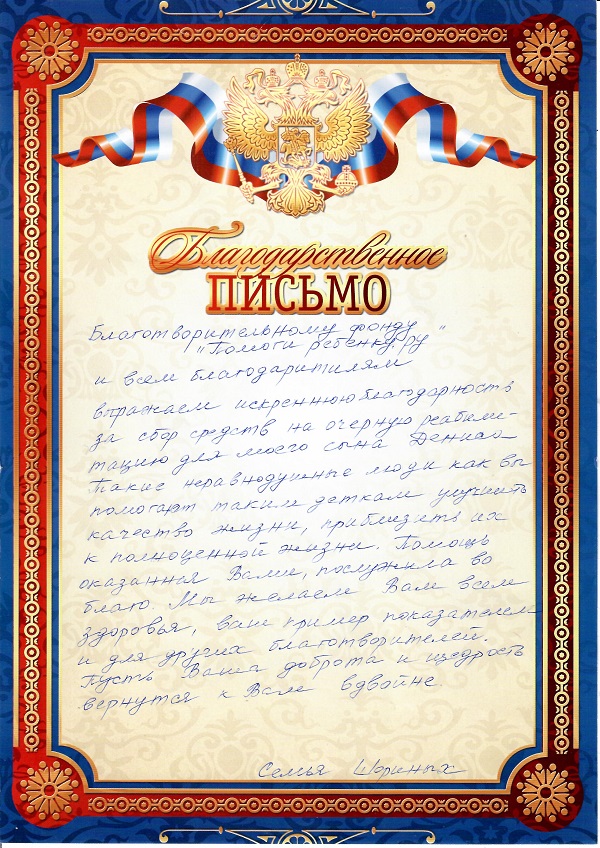 Благодарственное
ПИСЬМО
Благотворительному фонду
"Помоги ребенку.ру"
и всем благодаритилям
выражаем искреннюю благодарность
за сбор средств на очерную реабили-
тацию для моего сына Дениса
Такие неравнодушные люди как вы
помогают таким деткам улучшить
качество жизни, приблизить их
к полноценной жизни. Помощь
оказанная Вами, послужила во
благо. Мы желаем Вам всем
здоровья, ваш пример показателем
и для других благотворителей.
Пусть Ваша доброта и щедрость
вернутся к Вам вдвойне
Семья Шориных